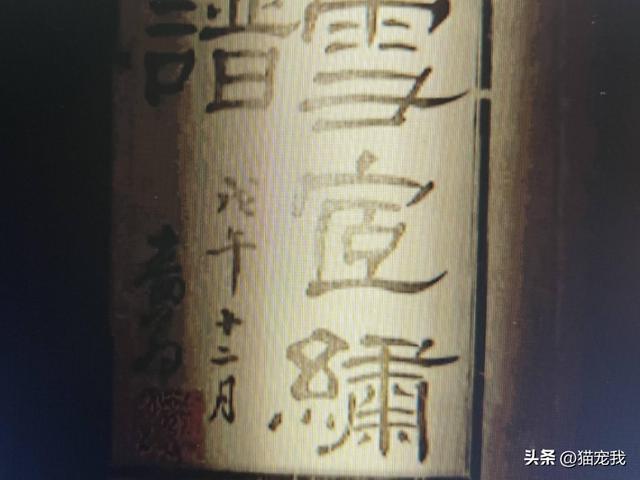 雪宧繡
譜
戊午十二月
头条 @猫宠我